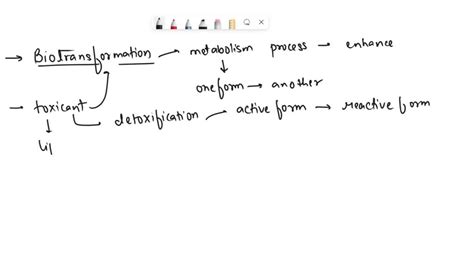 → Biotransformation → metabolism process → enhance
↓
one form → another
→ toxicant detoxification → active form → reactive form
↓
lip